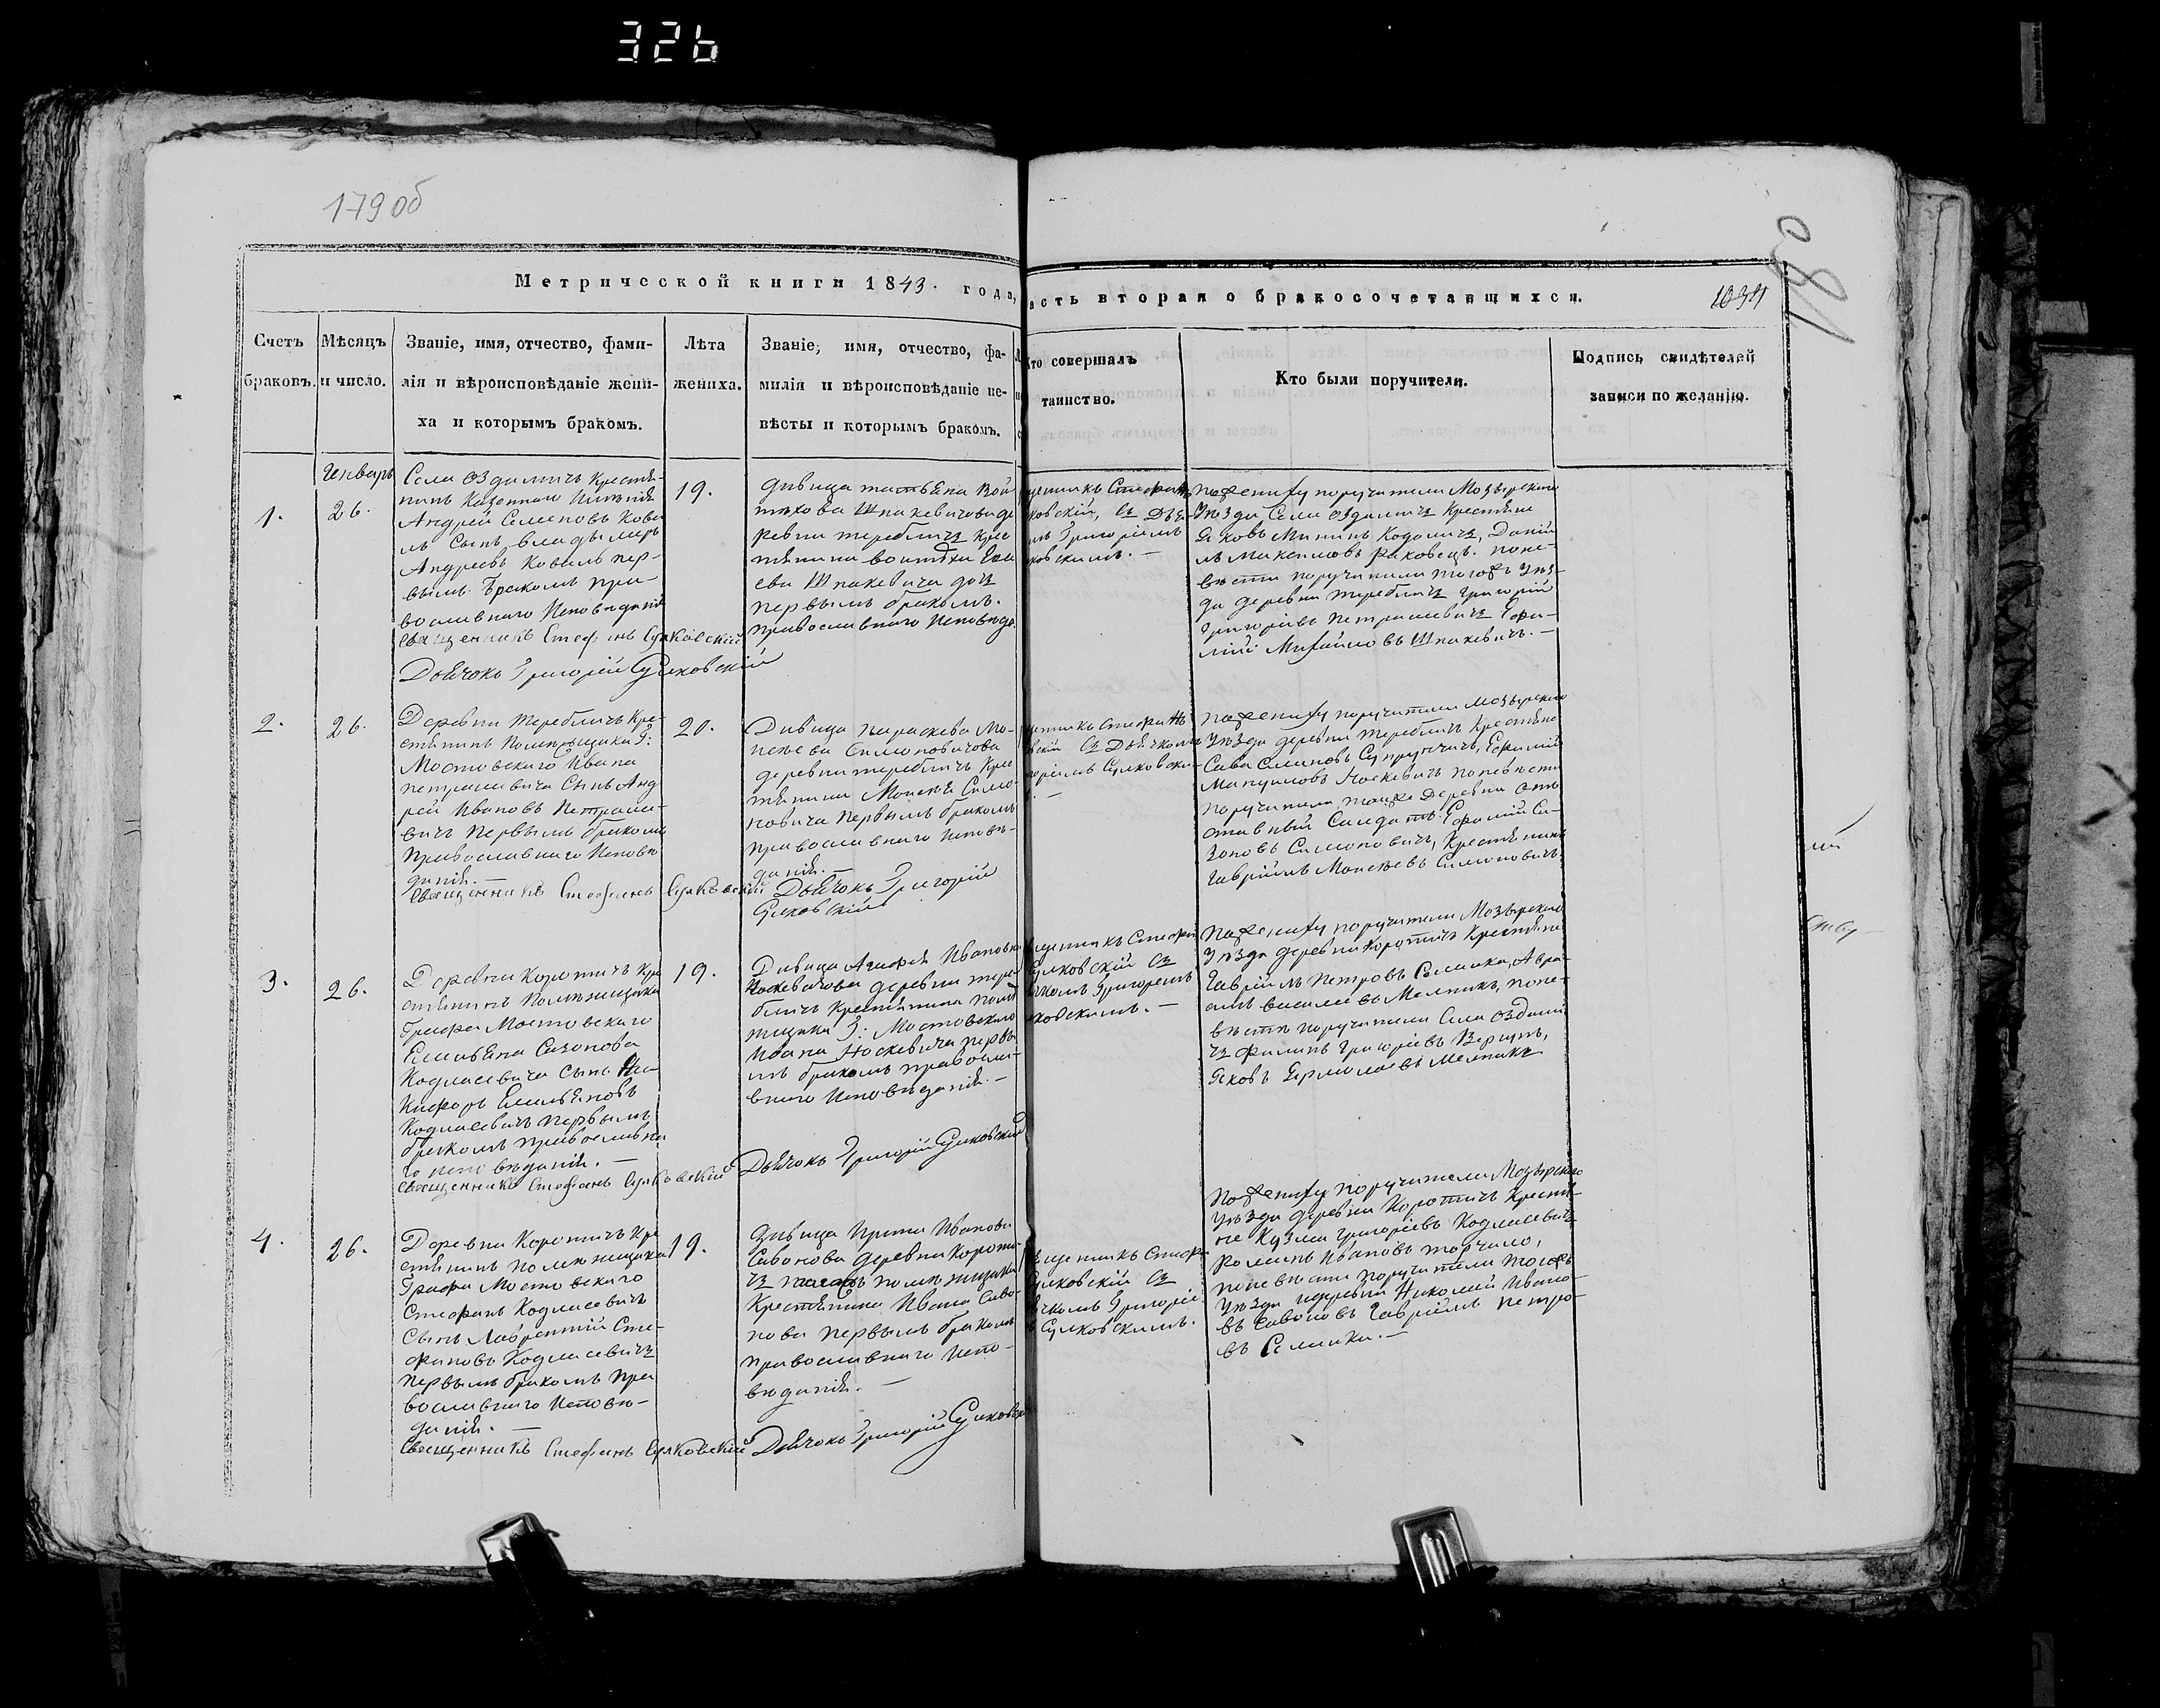 326
179 об
180
Метрической книги 1843. года,
асть вторая о бракосочетавшихся.
1034
Счетъ
браковъ.
Мѣсяцъ
и число.
Званіе, имя, отчество, фами-
лія и вѣроисповѣданіе жени-
ха и которымъ бракомъ.
Лѣта
жениха.
Званіе, имя, отчество, фа-
милія и вѣроисповѣданіе не-
вѣсты и которымъ бракомъ.
Кто совершалъ
таинство.
Кто были поручители.
Подпись свидѣтелей
записи по желанію.
Генварь
1.
26.
Села Оздамичъ Крестья-
нинъ Казеннаго Имѣнія
Андрей Семеновъ Кова
ль Сынъ Владымеръ
Андреевъ Коваль пер-
вымъ бракомъ пра-
вославнаго Исповиданія
Священникъ Стефанъ Сулковскій
Дьячокъ Григорій Сулковскій
19.
Дивица татьяна Вои
тихова Шпакевичова де
ревни теребличъ Крес
тянина Воитиха
ева Шпакевича дочь
первымъ бракомъ.
православнаго Исповида.
щенникъ Стефанъ
ковскій, съ Дья-
мъ Григоріемъ
ковскимъ. —
Пожениху поручители Мозырскаго
Уѣзда Села Оздамичъ Крестьяне
Яковъ Митинъ Кодоличъ, Даніи
лъ Максимовъ Раковецъ. поне-
вѣсти поручители тогожъ Уѣз-
да деревни теребличъ Григорій
Григоріевъ Петрашевичъ Ефи-
мій Михайловъ Шпакевичъ. —
2.
26.
Деревни Теребличъ Кре-
стянинъ Помѣщика Г:
Мостовскаго Ивана
петрашевича Сынъ Анд
рей Ивановъ Петраше-
вичъ Первымъ бракомъ
Православнаго Исповѣ
данія. —
Священникъ Стефанъ Сулковскій
20.
Дивица параскева Мо-
исеева Симоновичова
деревни теребличъ Крес
тянина Моисея Симо-
новича Первымъ бракомъ
православнаго Исповѣ-
данія. —
Дьячокъ Григорій
Сулковскій
щенникъ Стефанъ
вскій съ Дьячкомъ
горіемъ Сулковски-
—
Пожениху поручители Мозырскаго
Уѣзда деревни теребличъ Крестьяне
Сава Симоновъ Супрунчичъ, Ефимій
Мануиловъ Носкевичъ поневѣсти
поручители тойже Деревни отъ
ставный Салдатъ Ефимій Са-
зоновъ Симоновичъ, Крестянинъ
Гавріилъ Моисеевъ Симоновичъ.
3.
26.
Деревни Коротичъ Кре
стянинъ Помѣщика
Графа Мостовскаго
Емельяна Сазонова
Кодласевича Сынъ Ни-
кифоръ Емельяновъ
Кодласевичъ первымъ
бракомъ православна
го исповѣданія. —
Священникъ Стефанъ Сулковскій
19.
Дивица Агафія Ивановна
Носкевичова деревни тере
бличъ Крестянина помѣ
щика Г: Мостовскаго
Ивана Носкевича первы
мъ бракомъ правосла-
внаго Исповѣданія. —
Дьячокъ Григорій Сулковскій
щенникъ Стефанъ
Сулковскій съ
чкомъ Григоріемъ
ковскимъ. —
Пожениху поручители Мозырскаго
Уѣзда деревни Коротичъ Крестьяне
Гавріилъ Петровъ Семака, Авра-
амъ Василевъ Мелникъ, поне-
вѣсти поручители Села Оздами
чъ Филипъ Григоріевъ Вершукъ,
Яковъ Ермолаевъ Мелникъ
4.
26.
Деревни Коротичъ Кре
стянинъ Помѣщика
Графа Мостовскаго
Стефанъ Кодласевичъ
Сынъ Лаврентій Сте-
фановъ Кодласевичъ
первымъ бракомъ Пра
вославнаго Исповѣ-
данія. —
Священникъ Стефанъ Сулковскій
19.
Дивица Ирина Иванова
Савонова деревни Короти-
чъ помѣщика
Крестянина Ивана Саво-
нова первымъ бракомъ
православнаго Испо-
вѣданія. —
Дьячокъ Григорій Сулковскій
щенникъ Стефа
Сулковскій съ
чкомъ Григоріе
Сулковскимъ.
Пожениху поручители Мозырскаго
Уѣзда деревни Коротичъ Крестья-
не Кузма Григоріевъ Кодласевичъ
Романъ Ивановъ торчило,
поневѣсти поручители тогожъ
Уѣзда Николай Ивано-
въ Савоновъ Гавріилъ Петро-
въ Семака. —